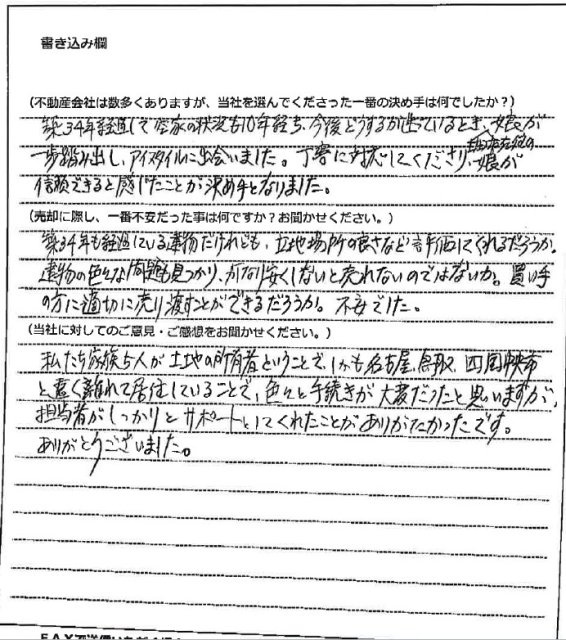 書き込み欄
(不動産会社は数多くありますが、当社を選んでくださった一番の決め手は何でしたか?)
築34年経過して空家の状況も10年経ち、今後どうするか迷っているとき、娘が
一歩踏み出し、アイスタイルに出会いました。丁寧に対応してくださり、娘が
信頼できると感じたことが決め手となりました。
(売却に際し、一番不安だった事は何ですか?お聞かせください。)
築34年も経過している建物だけれども、立地場所の良さなど評価してくれるだろうか。
建物の色々な問題も見つかり、かなり安くしないと売れないのではないか。買い手
の方に適切に売り渡すことができるだろうか。不安でした。
(当社に対してのご意見・ご感想をお聞かせください。)
私たち家族5人が土地の所有者ということで、しかも名古屋、鳥取、四国
と遠く離れて居住していることで、色々と手続きが大変だったと思いますが、
担当者がしっかりとサポートしてくれたことがありがたかったです。
ありがとうございました。